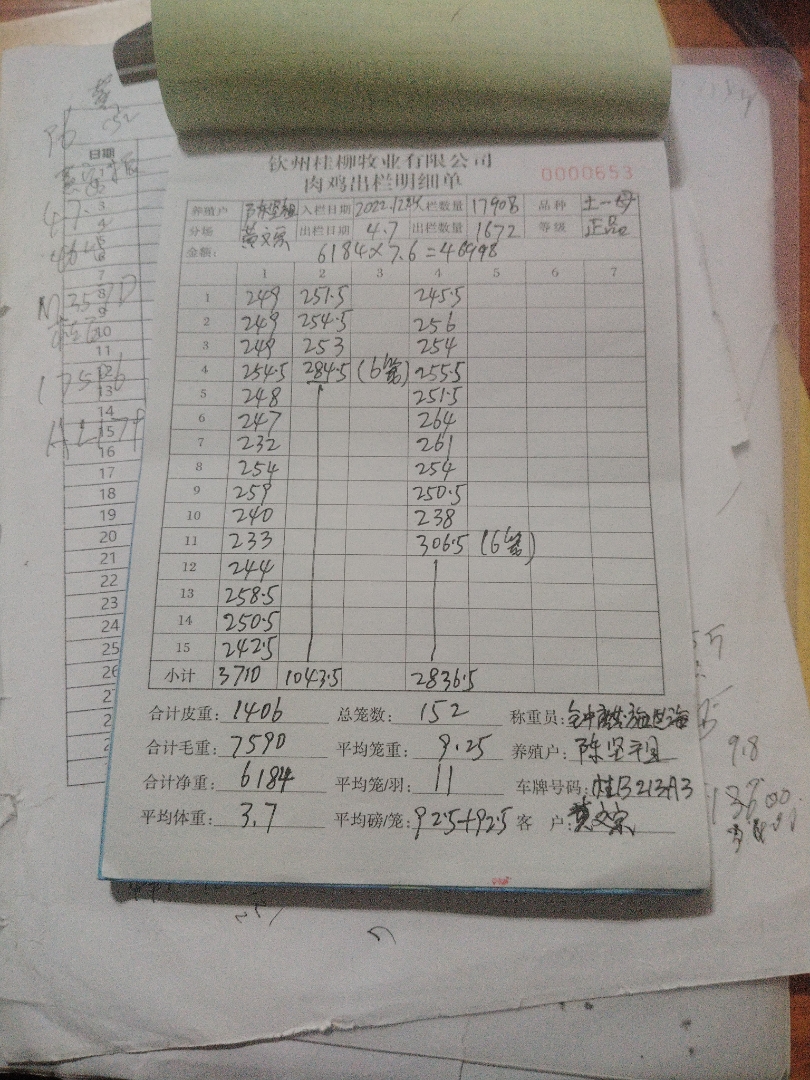 钦州桂柳牧业有限公司
肉鸡出栏明细单
0000653
养殖户 陈坚祖 入栏日期 2022.12.24 栏数量 17908 品种 土一母
分场 黄文宗 出栏日期 4.7 出栏数量 1672 等级 正品
金额: 6184×7.6=46998
1 2 3 4 5 6 7
1 249 251.5 245.5
2 249 254.5 256
3 249 253 254
4 254.5 284.5 (6笼) 255.5
5 248 251.5
6 247 264
7 232 261
8 254 254
9 259 250.5
10 240 238
11 233 306.5 (6笼)
12 244
13 258.5
14 250.5
15 242.5
小计 3710 1043.5 2836.5
合计皮重: 1406 总笼数: 152 称重员:
合计毛重: 7590 平均笼重: 9.25 养殖户: 陈坚祖
合计净重: 6184 平均笼/羽: 11 车牌号码: 桂B213A3
平均体重: 3.7 平均磅/笼: 92.5+92.5 客 户: 黄文宗
日期
3
4
7
8
9
10
11
12
13
14
15
16
17
18
19
20
21
22
23
24
25
26
9.8